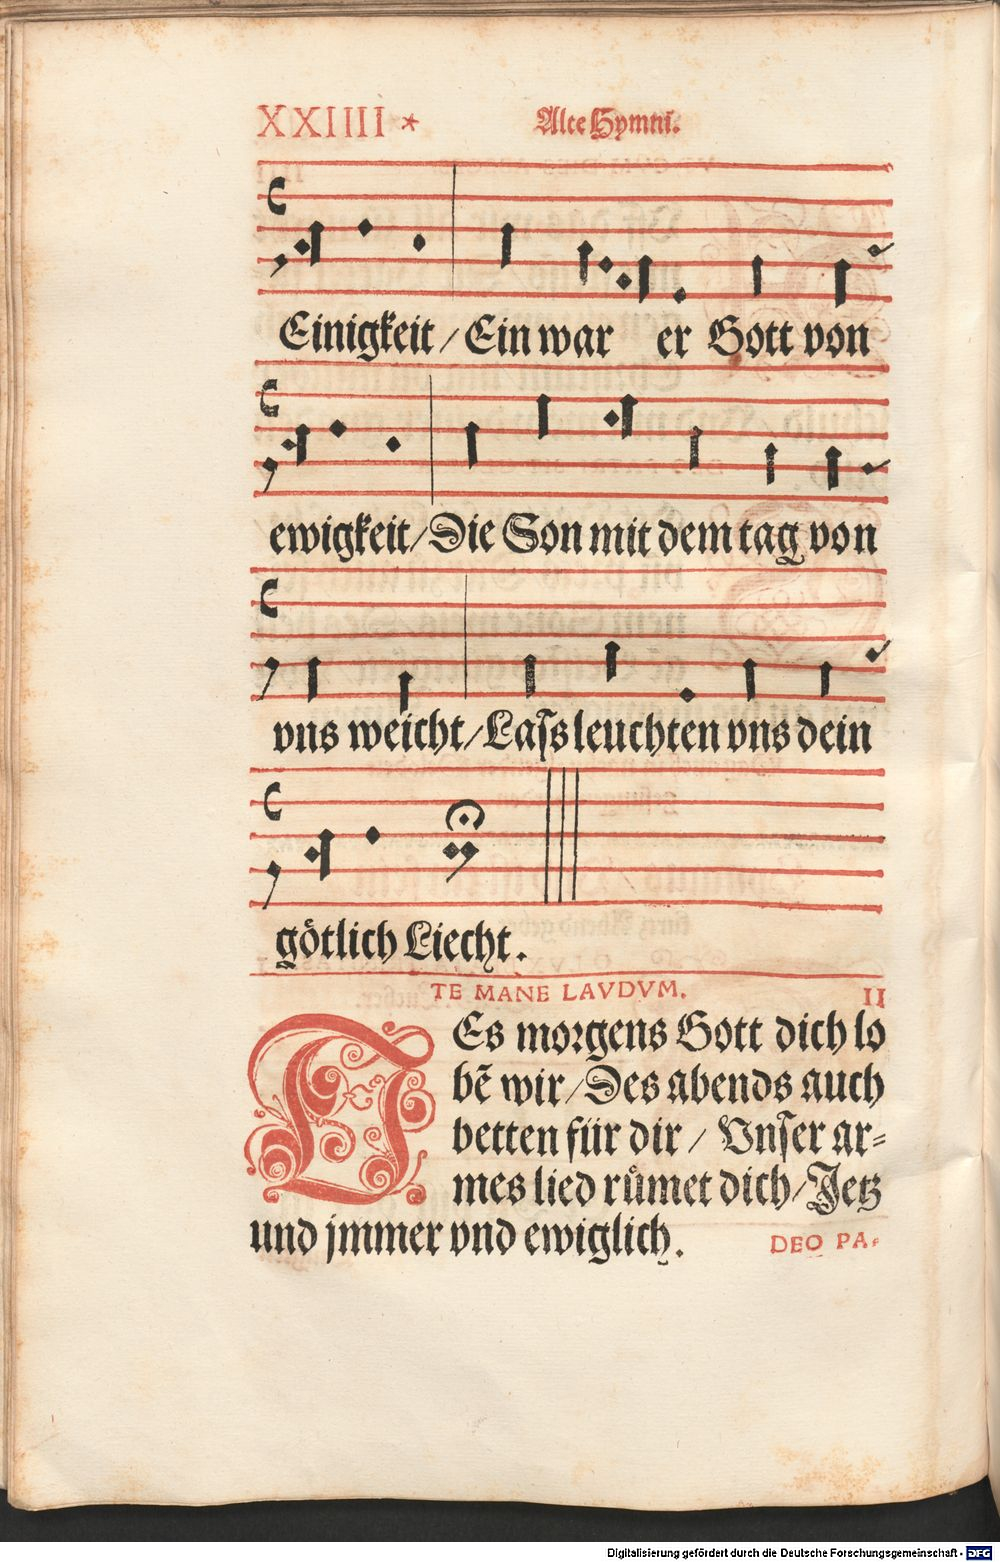 XXIIII * Alte Hymni.
Einigkeit / Ein war er Gott von
ewigkeit / Die Son mit dem tag von
vns weicht / Laſs leuchten vns dein
götlich Liecht.
TE MANE LAVDVM. II
Es morgens Gott dich lo
bē wir / Des abends auch
betten für dir / Vnſer ar=
mes lied růmet dich / Jetz
und jmmer vnd ewiglich. DEO PA=
Digitalisierung gefördert durch die Deutsche Forschungsgemeinschaft - DFG